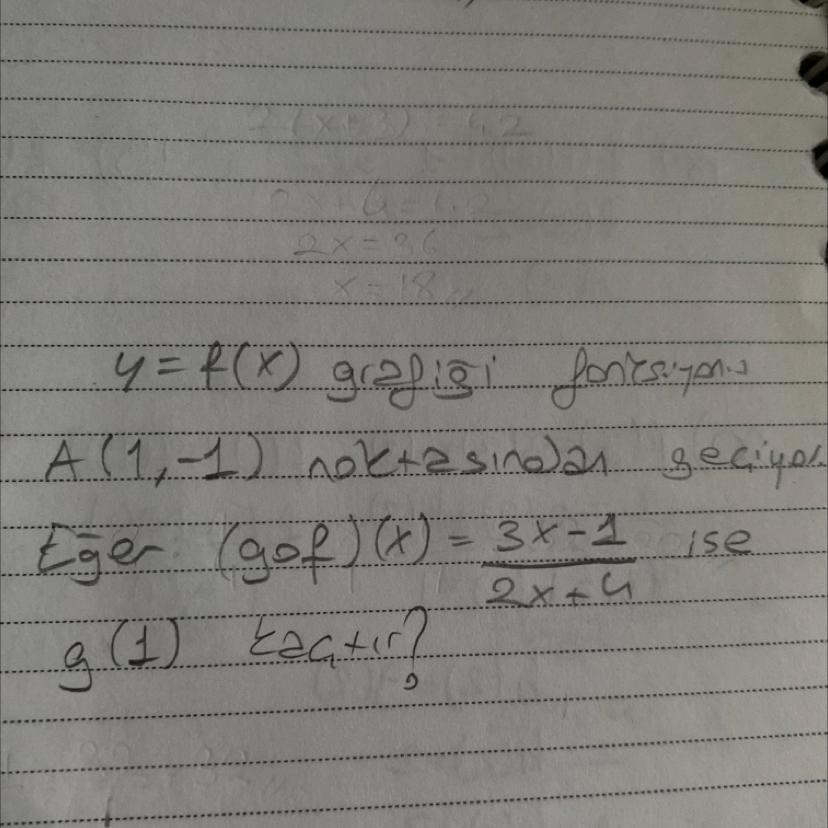 7(x+3) = 42
2x = 36
x = 18
y = f(x) grafiği fonksiyonu
A(1,-1) noktasından geçiyor.
Eğer (gof)(x) = \frac{3x-1}{2x+4} ise
g(1) kaçtır?